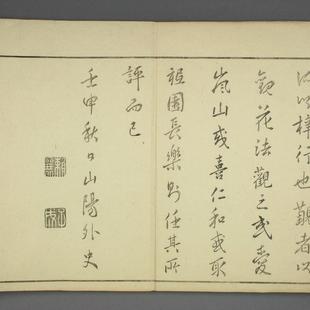 梓行也觀者以
觀花法觀之或愛
嵐山或喜仁和或取
祖園長樂則任其所
評而已
壬申秋日山陽外史